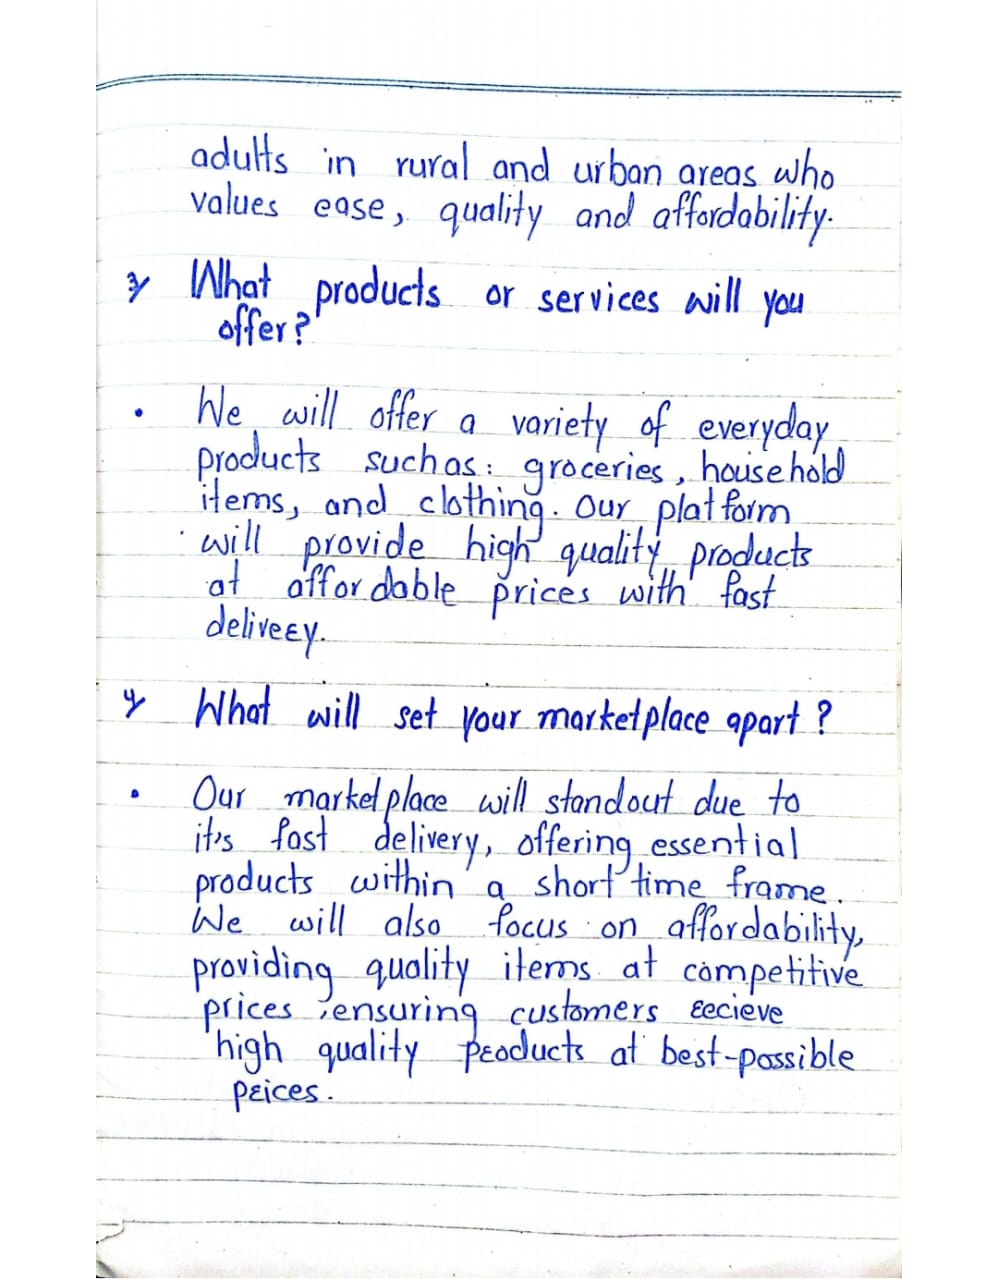 adults in rural and urban areas who
values ease, quality and affordability.
3) What products or services will you
offer?
• We will offer a variety of everyday
products suchas: groceries, household
items, and clothing. Our platform
will provide high quality products
at affordable prices with fast
delivery.
4) What will set your marketplace apart?
• Our marketplace will standout due to
it's fast delivery, offering essential
products within a short time frame.
We will also focus on affordability,
providing quality items at competitive
prices, ensuring customers recieve
high quality products at best-possible
prices.